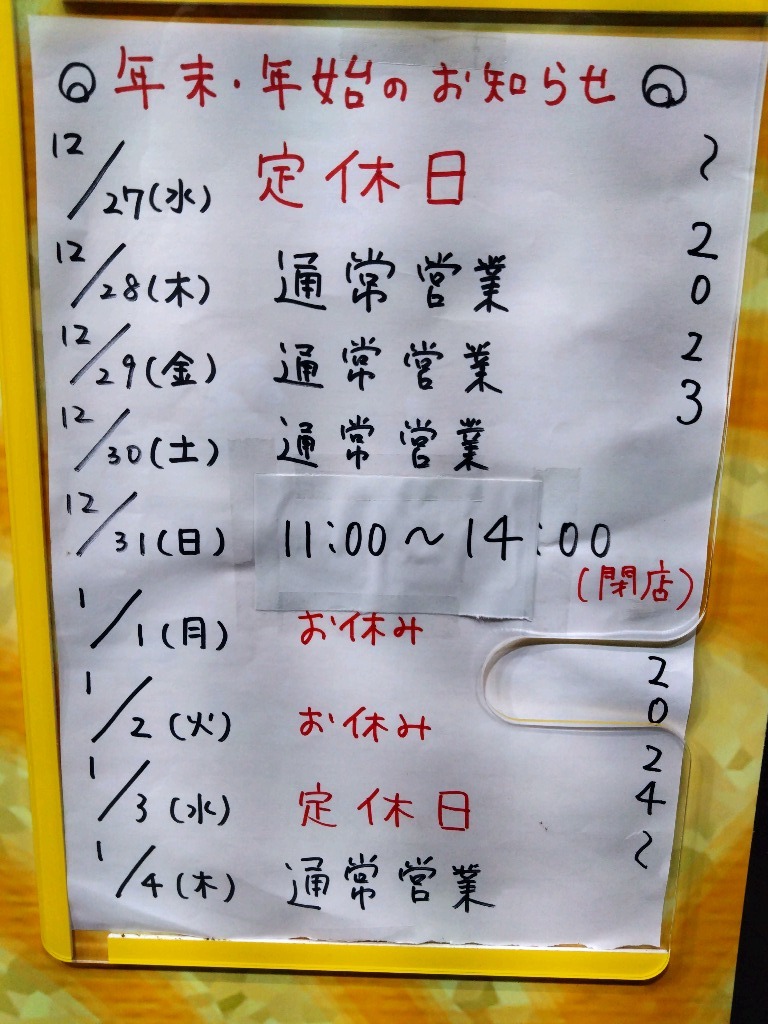 年末・年始のお知らせ
12/27(水) 定休日
12/28(木) 通常営業
12/29(金) 通常営業
12/30(土) 通常営業
12/31(日) 11:00～14:00
(閉店)
1/1(月) お休み
1/2(火) お休み
1/3(水) 定休日
1/4(木) 通常営業
～2023
2024～